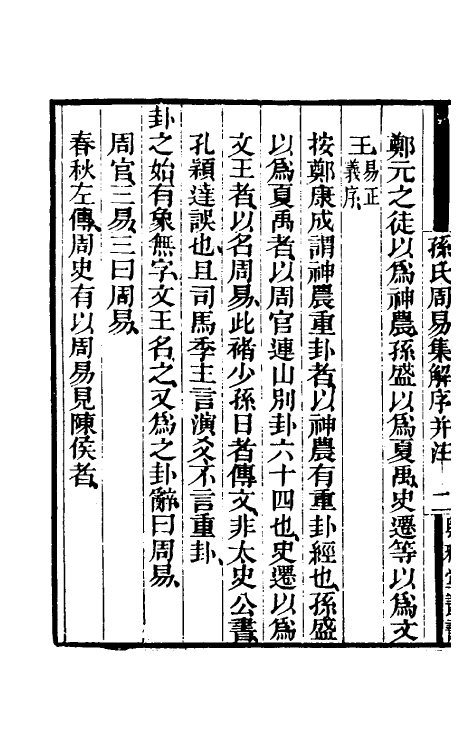 孫氏周易集解序并注 二
鄭元之徒以爲神農、孫盛以爲夏禹、史遷等以爲文
王、易正義序、
按鄭康成謂神農重卦者、以神農有重卦經也、孫盛
以爲夏禹者、以周官連山別卦六十四也、史遷以爲
文王者、以名周易、此褚少孫日者傳文、非太史公書、
孔穎達誤也、且司馬季主言演爻不言重卦、
卦之始有象無字、文王名之、又爲之卦辭、曰周易、
周官、三易、三曰周易、
春秋左傳、周史有以周易見陳侯者、